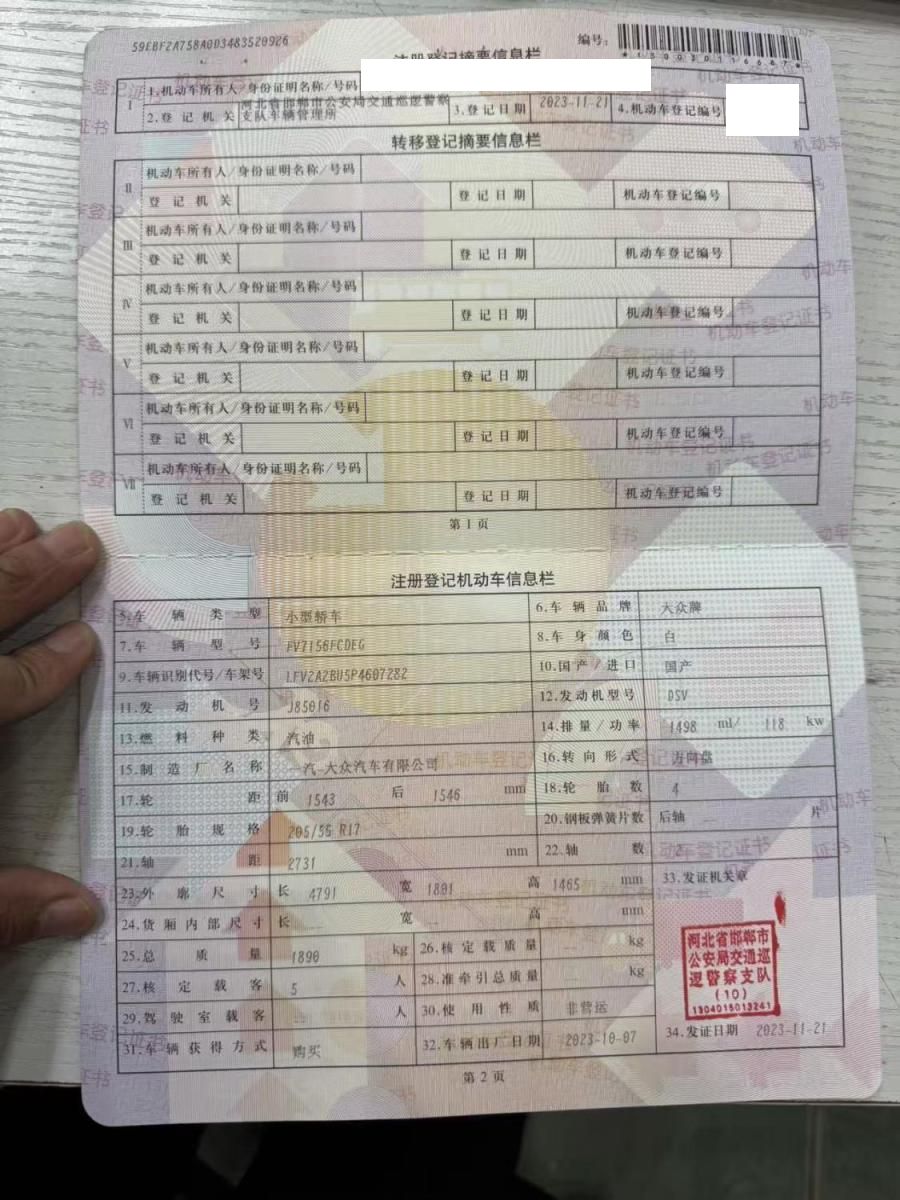 59EBF2A758A0D3483520926
编号：
*130030116687*
注册登记摘要信息栏
Ⅰ 1.机动车所有人/身份证明名称/号码
2.登记机关 河北省邯郸市公安局交通巡逻警察支队车辆管理所 3.登记日期 2023-11-21 4.机动车登记编号
转移登记摘要信息栏
Ⅱ 机动车所有人/身份证明名称/号码
登记机关 登记日期 机动车登记编号
Ⅲ 机动车所有人/身份证明名称/号码
登记机关 登记日期 机动车登记编号
Ⅳ 机动车所有人/身份证明名称/号码
登记机关 登记日期 机动车登记编号
Ⅴ 机动车所有人/身份证明名称/号码
登记机关 登记日期 机动车登记编号
Ⅵ 机动车所有人/身份证明名称/号码
登记机关 登记日期 机动车登记编号
Ⅶ 机动车所有人/身份证明名称/号码
登记机关 登记日期 机动车登记编号
第1页
注册登记机动车信息栏
5.车辆类型 小型轿车 6.车辆品牌 大众牌
7.车辆型号 FV7156FCDEG 8.车身颜色 白
9.车辆识别代号/车架号 LFV2A2BU5P4607282 10.国产/进口 国产
11.发动机号 J85016 12.发动机型号 DSV
13.燃料种类 汽油 14.排量/功率 1498 ml/ 118 kw
15.制造厂名称 一汽-大众汽车有限公司 16.转向形式 方向盘
17.轮距 前 1543 后 1546 mm 18.轮胎数 4
19.轮胎规格 205/55 R17 20.钢板弹簧片数 后轴 片
21.轴距 2731 mm 22.轴数 2
23.外廓尺寸 长 4791 宽 1801 高 1465 mm 33.发证机关章
24.货厢内部尺寸 长 宽 高 mm
25.总质量 1890 kg 26.核定载质量 kg
27.核定载客 5 人 28.准牵引总质量 kg
29.驾驶室载客 人 30.使用性质 非营运
31.车辆获得方式 购买 32.车辆出厂日期 2023-10-07
河北省邯郸市
公安局交通巡
逻警察支队
(10)
1304015013241
34.发证日期 2023-11-21
第2页